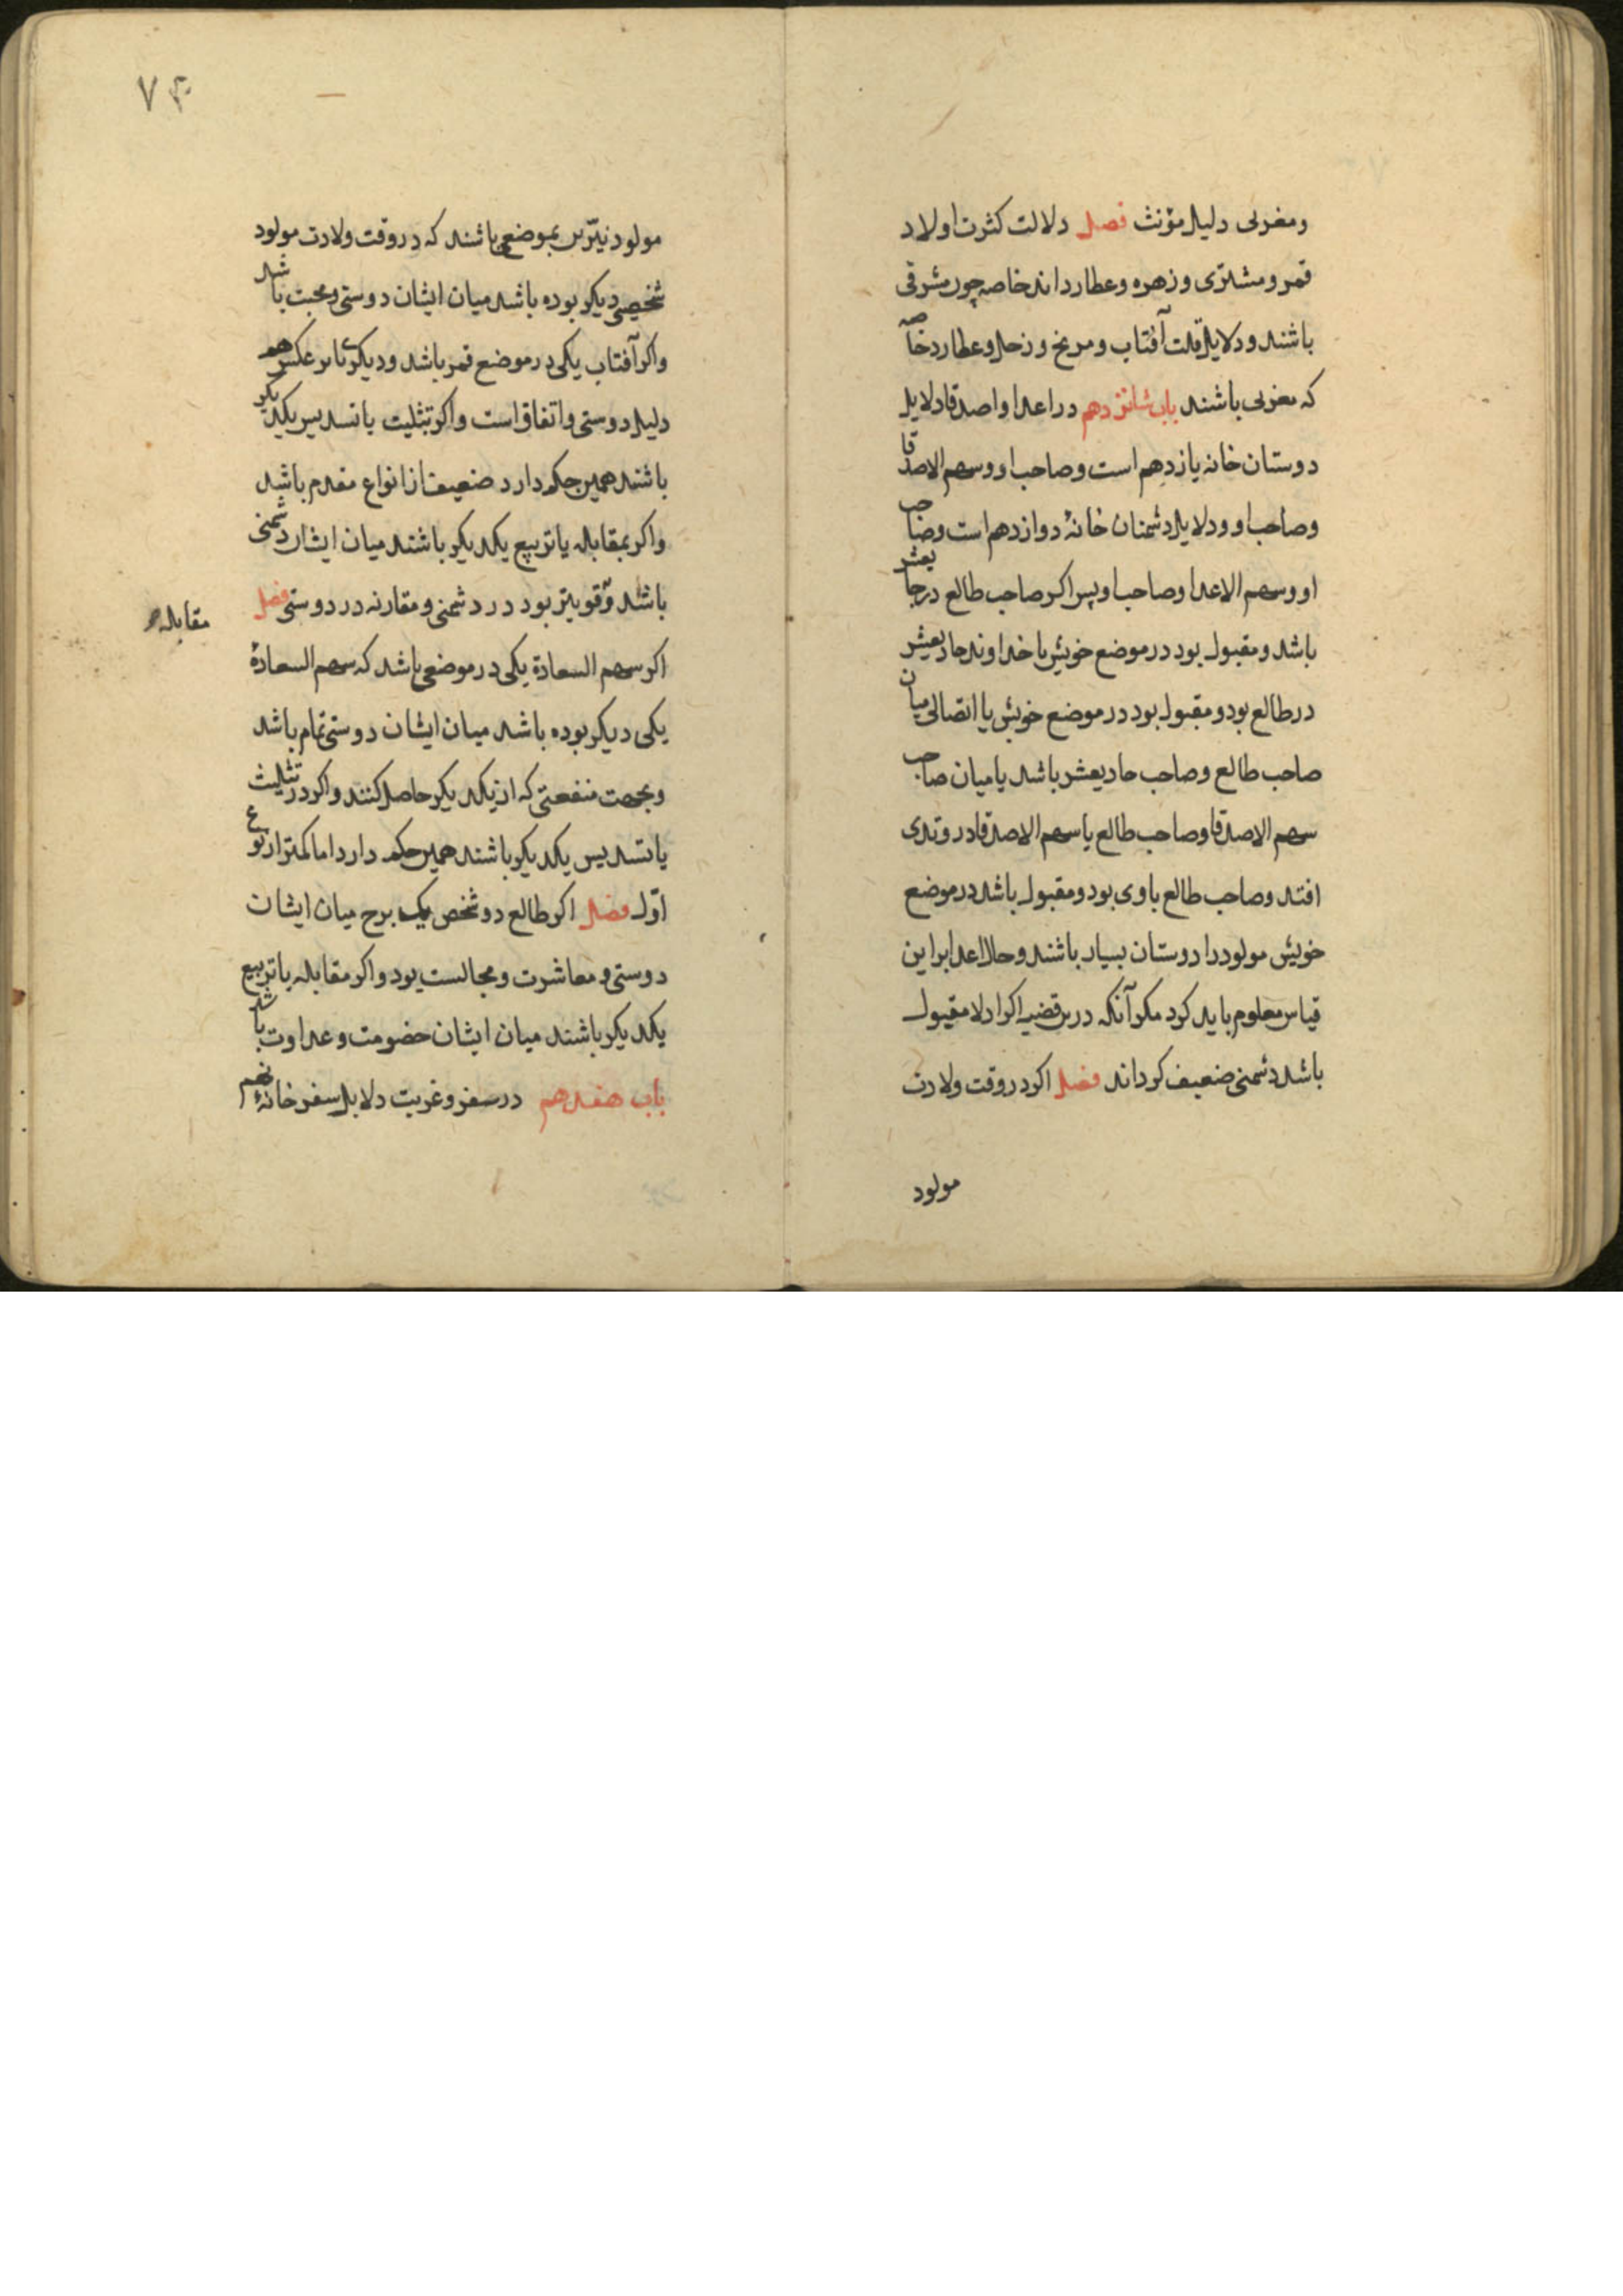 ومغربی دلیل مؤنث فصل دلالت کثرت اولاد
قمر و مشتری و زهره و عطارد اند خاصه چون مشرقی
باشند و دلایل قلت آفتاب و مریخ و زحل و عطارد خاصه
که مغربی باشند باب شانزدهم در اعدا و اصدقا دلایل
دوستان خانه یازدهم است و صاحب او و سهم الاصدقا
وصاحب او و دلایل دشمنان خانهٔ دوازدهم است وصاحب
او و سهم الاعدا وصاحب او پس اکر صاحب طالع در حادیعشر
باشد و مقبول بود در موضع خویش یا خداوند حادیعشر
در طالع بود و مقبول بود در موضع خویش یا اتصالی میان
صاحب طالع و صاحب حادیعشر باشد یا میان صاحب
سهم الاصدقا وصاحب طالع یا سهم الاصدقا در وتدی
افتد وصاحب طالع با وی بود و مقبول باشد در موضع
خویش مولود را دوستان بسیار باشند و حال اعدا براین
قیاس معلوم باید کرد مکر آنکه درین قضیه اکر ادلا مقبول
باشد دشمنی ضعیف کرداند فصل اکر در وقت ولادت
مولود
۷۴
مولود نیّرین بموضعی باشند که در وقت ولادت مولود
شخصی دیکر بوده باشد میان ایشان دوستی و محبت باشد
واکر آفتاب یکی در موضع قمر باشد و دیکری یا بر عکس هم
دلیل دوستی و اتفاق است واکر بتثلیت یا تسدیس یکدیکر
باشند همین حکم دارد ضعیف از انواع مقدم باشد
واکر بمقابله یا تربیع یکدیکر باشند میان ایشان دشمنی
باشد و قویتر بود در دشمنی و مقارنه در دوستی فصل
مقابله
اکر سهم السعادة یکی در موضعی باشد که سهم السعادة
یکی دیکر بوده باشد میان ایشان دوستی تمام باشد
وبجهت منفعتی که از یکدیکر حاصل کنند و اکر در تثلیث
یا تسدیس یکدیکر باشند همین حکم دارد اما کمتر از نوع
اوّل فصل اکر طالع دو شخص یک برج میان ایشان
دوستی و معاشرت و مجالست بود و اکر مقابله یا تربیع
یکدیکر باشند میان ایشان خصومت و عداوت باشد
باب هفدهم در سفر و غربت دلایل سفر خانهٔ نهم